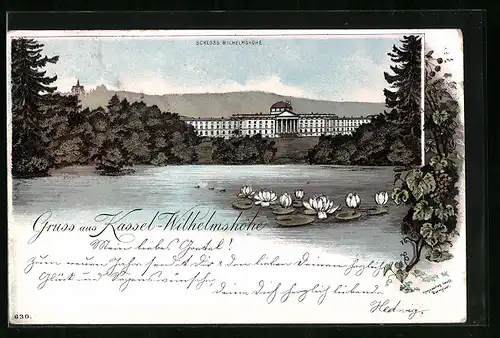 SCHLOSS WILHELMSHÖHE.
Gruss aus Kassel-Wilhelmshöhe
Mein liebes Gretel!
Zum neuen Jahr sendet dir & den lieben Deinen herzliche
Glück und Segenswünsche,
deine dich herzlich liebende
Hedwig
630.